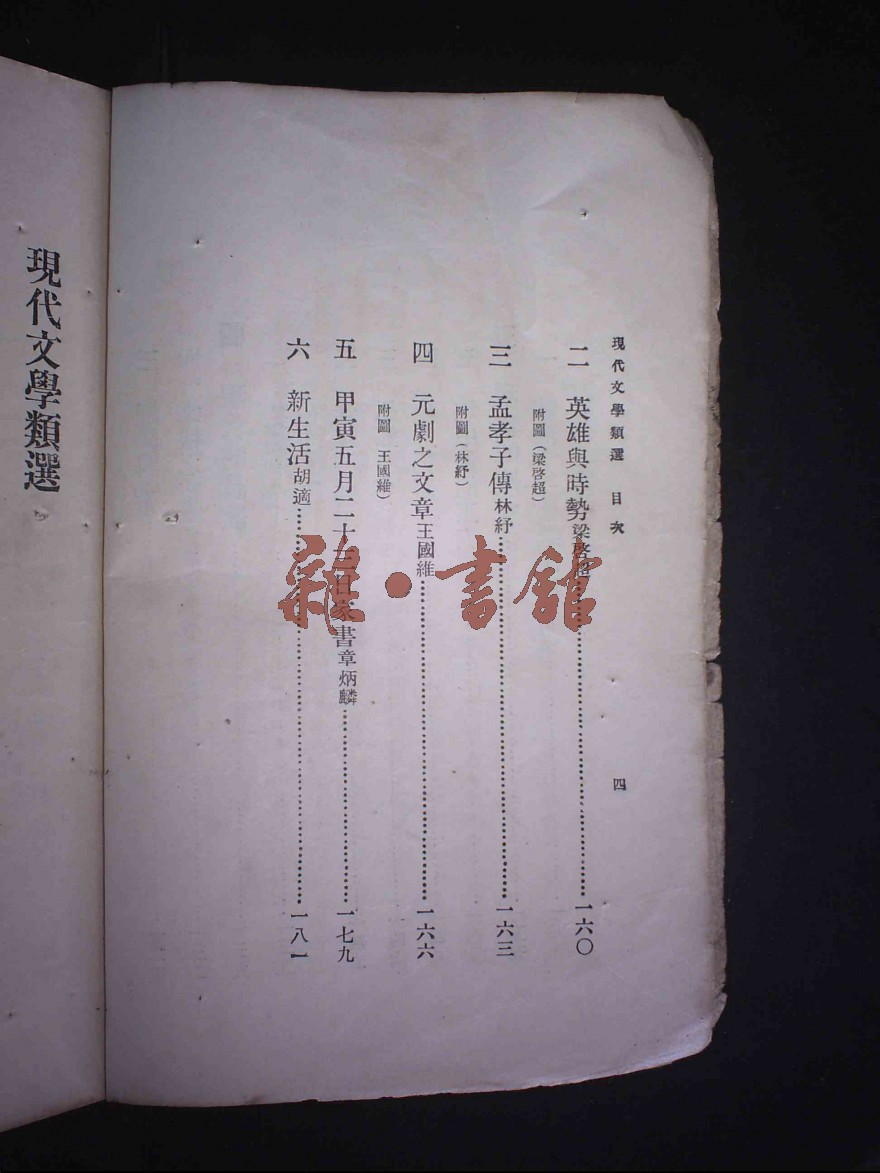 現代文學類選 目次 四
二 英雄與時勢 梁啓超 一六〇
附圖(梁啓超)
三 孟孝子傳 林紓 一六三
附圖(林紓)
四 元劇之文章 王國維 一六六
附圖 王國維)
五 甲寅五月二十三日家書 章炳麟 一七九
六 新生活 胡適 一八一
現代文學類選
雜·書館